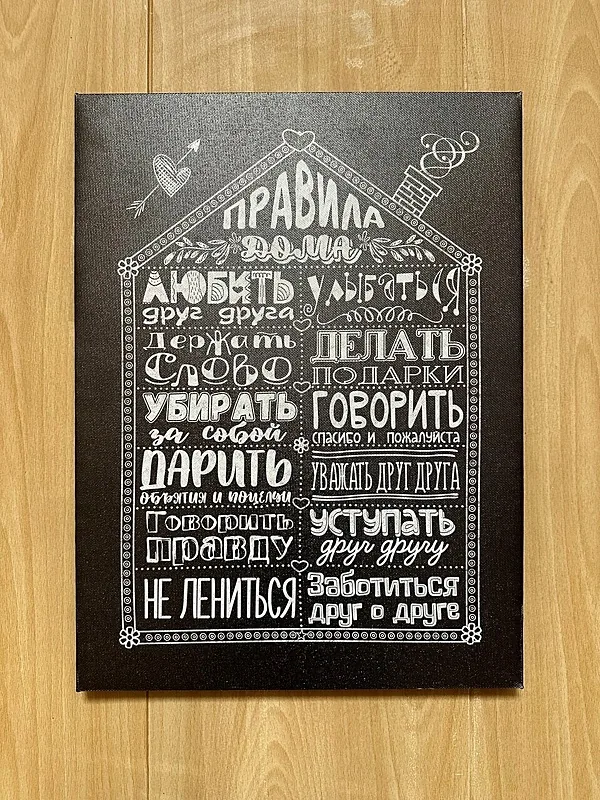 ПРАВИЛА
ДОМА
ЛЮБИТЬ
друг друга
УЛЫБАТЬСЯ
Держать
Слово
ДЕЛАТЬ
ПОДАРКИ
УБИРАТЬ
за собой
ГОВОРИТЬ
спасибо и пожалуйста
ДАРИТЬ
объятия и поцелуи
УВАЖАТЬ ДРУГ ДРУГА
Говорить
правду
уступать
друг другу
НЕ ЛЕНИТЬСЯ
Заботиться
друг о друге